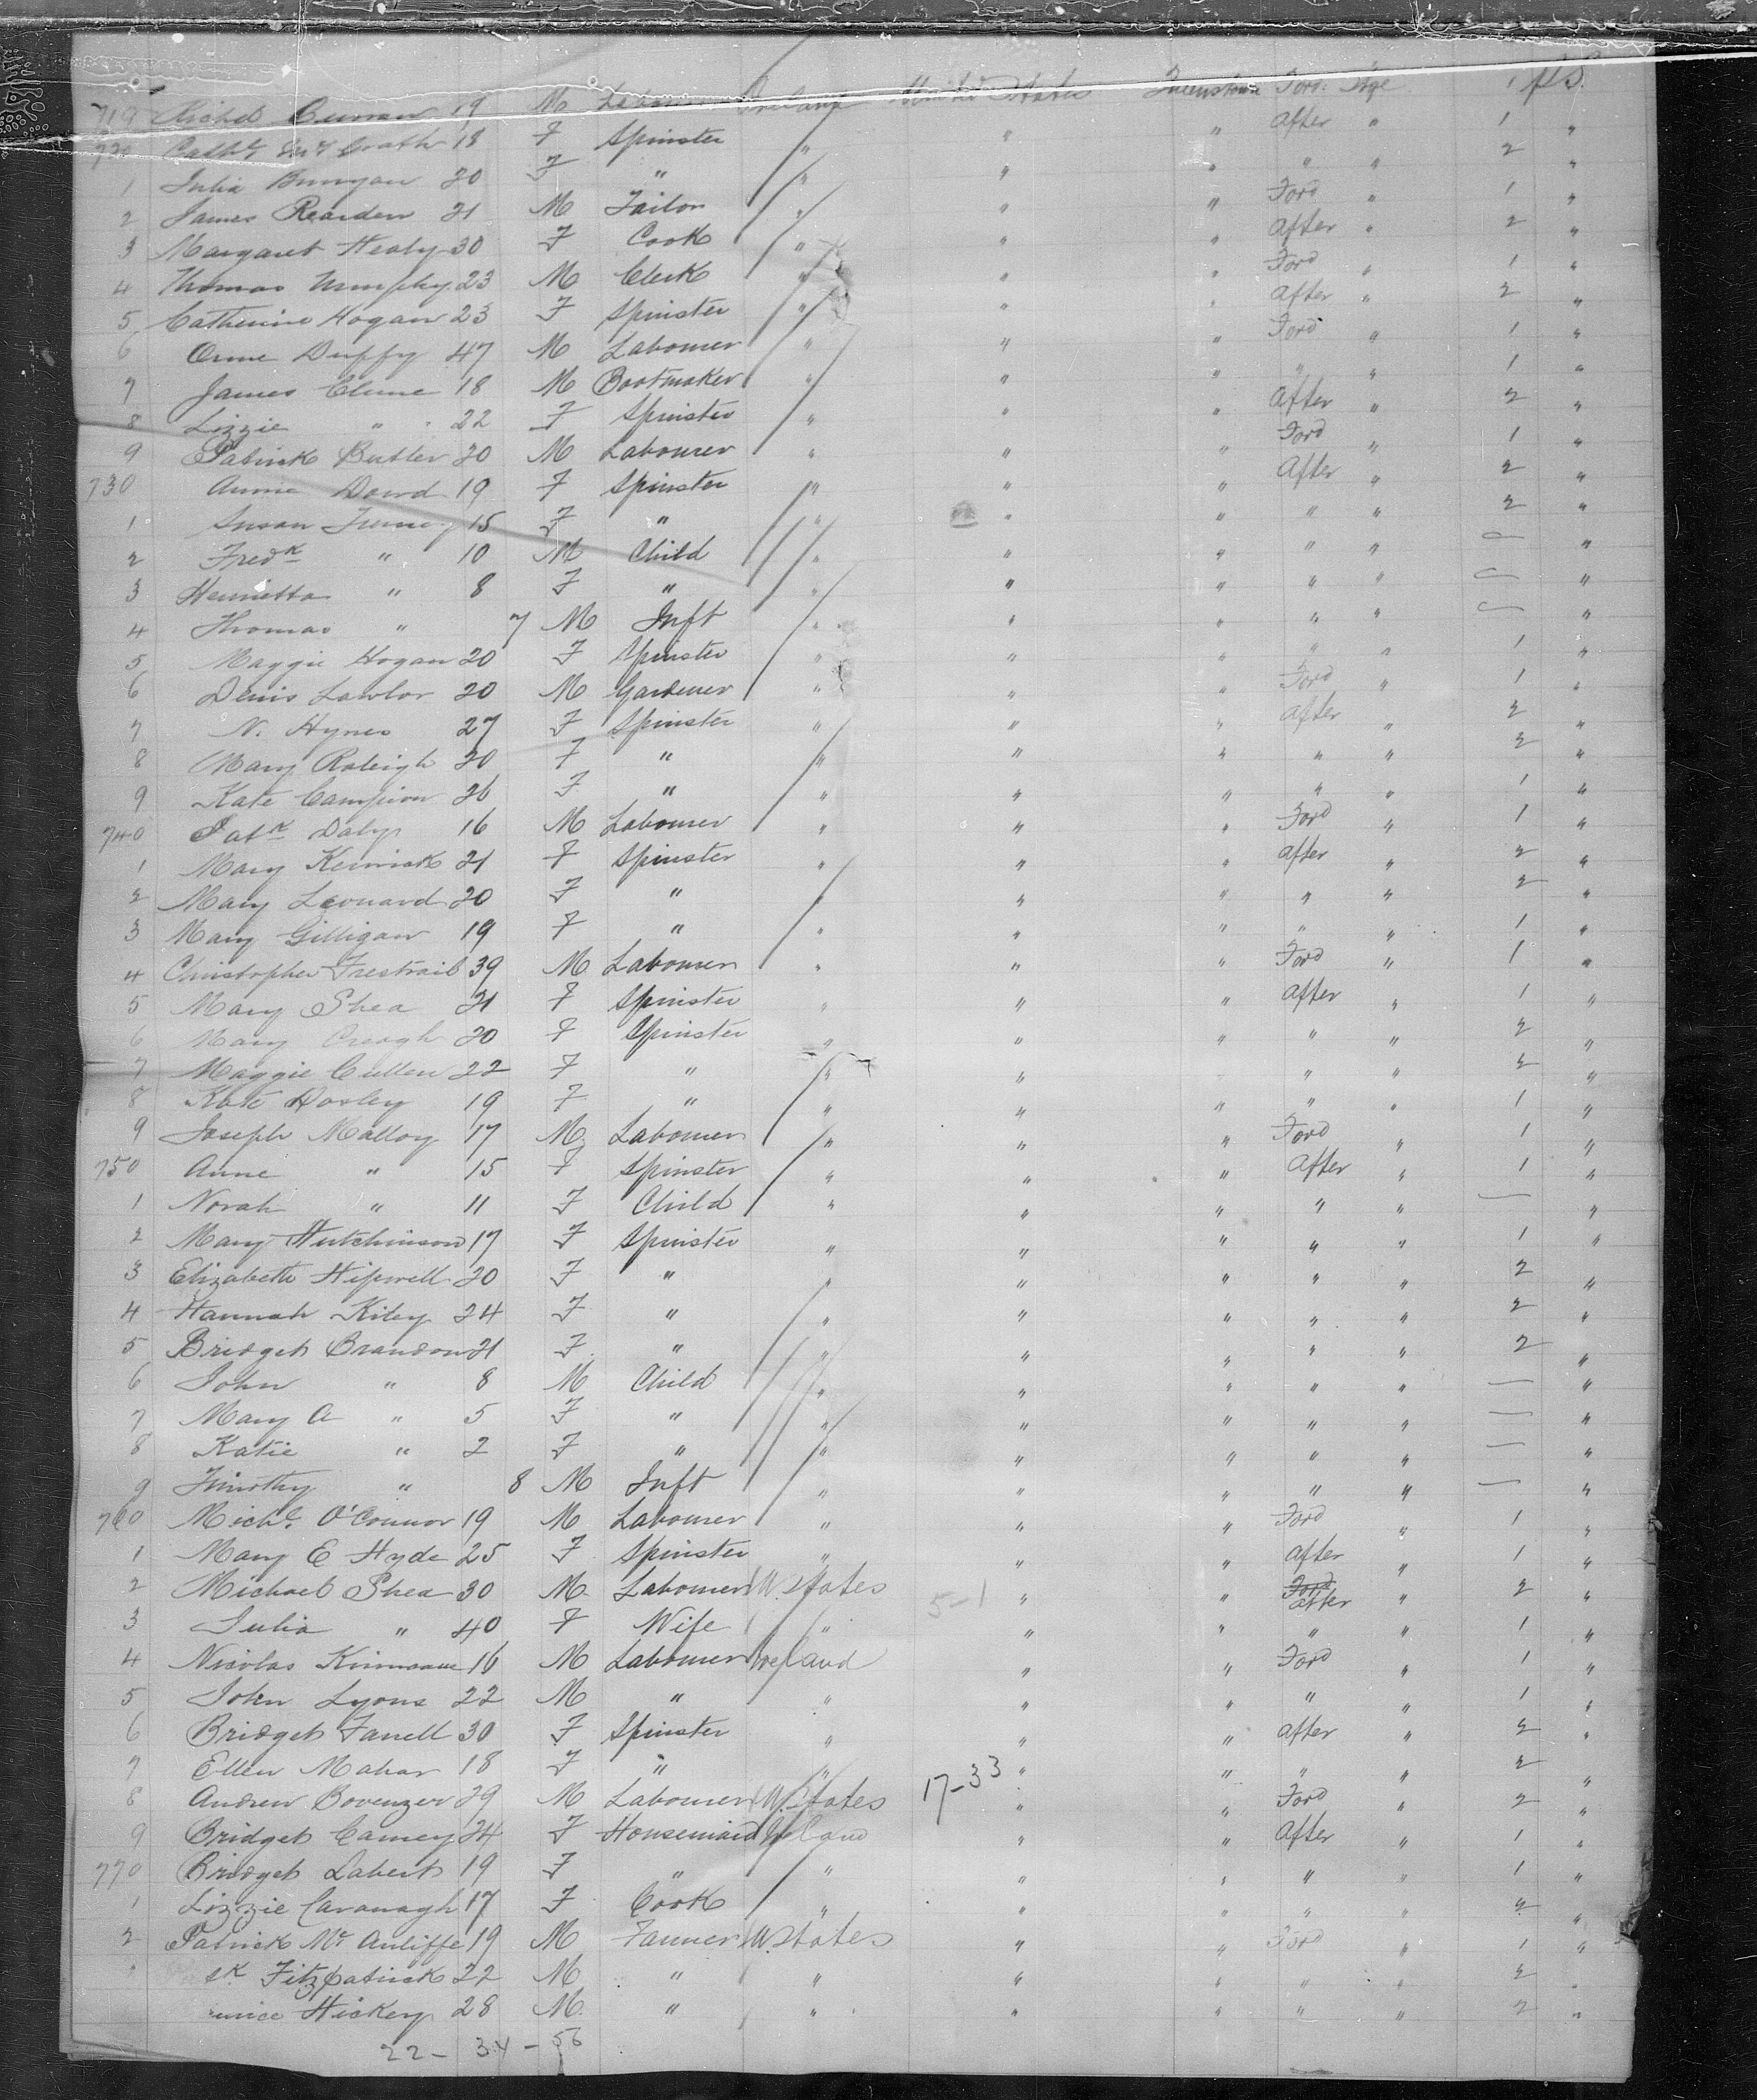 719 Richd Curran 19 M Labourer Ireland United States Queenstown Ford Stge 1 pS.
720 Cathe McGrath 18 F Spinster " " " After " 1 "
1 Julia Bunyan 20 F " " " " " " 2 "
2 James Rearden 21 M Tailor " " " Ford " 1 "
3 Margaret Healy 30 F Cook " " " After " 2 "
4 Thomas Murphy 23 M Clerk " " " Ford " 1 "
5 Catherine Hogan 23 F Spinster " " " After " 2 "
6 Duffy 47 M Labourer " " " Ford " 1 "
7 James Clune 18 M Bootmaker " " " " " 1 "
8 Lizzie " 22 F Spinster " " " After " 2 "
9 Patrick Butler 20 M Labourer " " " Ford " 1 "
730 Annie Dowd 19 F Spinster " " " After " 2 "
1 Susan 15 F " " " " " " 2 "
2 Fredk " 10 M Child " " " " " — "
3 Henrietta " 8 F " " " " " " — "
4 Thomas " 7 M Inft " " " " " — "
5 Maggie Hogan 20 F Spinster " " " " " 1 "
6 Denis Lawlor 20 M Gardener " " " Ford " 1 "
7 N. Hynes 27 F Spinster " " " After " 2 "
8 Mary Raleigh 20 F " " " " " " 2 "
9 Kate Campion 26 F " " " " " " 1 "
740 Patk Daly 16 M Labourer " " " Ford " 1 "
1 Mary Kerwick 21 F Spinster " " " After " 2 "
2 Mary Leonard 20 F " " " " " " 2 "
3 Mary Gilligan 19 F " " " " " " 1 "
4 Christopher Trestrail 39 M Labourer " " " Ford " 1 "
5 Mary Shea 21 F Spinster " " " After " 1 "
6 Mary Creagh 20 F Spinster " " " " " 2 "
7 Maggie Cullen 22 F " " " " " " 2 "
8 Kate Dooley 19 F " " " " " " 1 "
9 Joseph Malloy 17 M Labourer " " " Ford " 1 "
750 Anne " 15 F Spinster " " " After " 1 "
1 Norah " 11 F Child " " " " " — "
2 Mary Hutchinson 17 F Spinster " " " " " 1 "
3 Elizabeth Hipwell 20 F " " " " " " 2 "
4 Hannah Kiley 24 F " " " " " " 2 "
5 Bridget Brandon 21 F " " " " " " 2 "
6 John " 8 M Child " " " " " — "
7 Mary A " 5 F " " " " " " — "
8 Katie " 2 F " " " " " " — "
9 Timothy " 8 M Inft " " " " " — "
760 Michl O'Connor 19 M Labourer " " " Ford " 1 "
1 Mary E Hyde 25 F Spinster " " " After " 1 "
2 Michael Shea 30 M Labourer U. States 5-1 " " Ford After " 2 "
3 Julia " 40 F Wife " " " " " 1 "
4 Nicolas 16 M Labourer Ireland " " Ford " 1 "
5 John Lyons 22 M " " " " " " 1 "
6 Bridget Farrell 30 F Spinster " " " After " 2 "
7 Ellen Mahar 18 F " " " " " " 2 "
8 Andrew Bovenzer 29 M Labourer U. States 17-33 " " Ford " 2 "
9 Bridget Carney 24 F Housemaid Ireland " " After " 1 "
770 Bridget Labert 19 F " " " " " " 1 "
1 Lizzie Cavanagh 17 F Cook " " " " " 2 "
2 Patrick McAuliffe 19 M Farmer U. States " " Ford " 1 "
k Fitzpatrick 22 M " " " " " " 2 "
Hickey 28 M " " " " " " 2 "
22 - 34 - 56